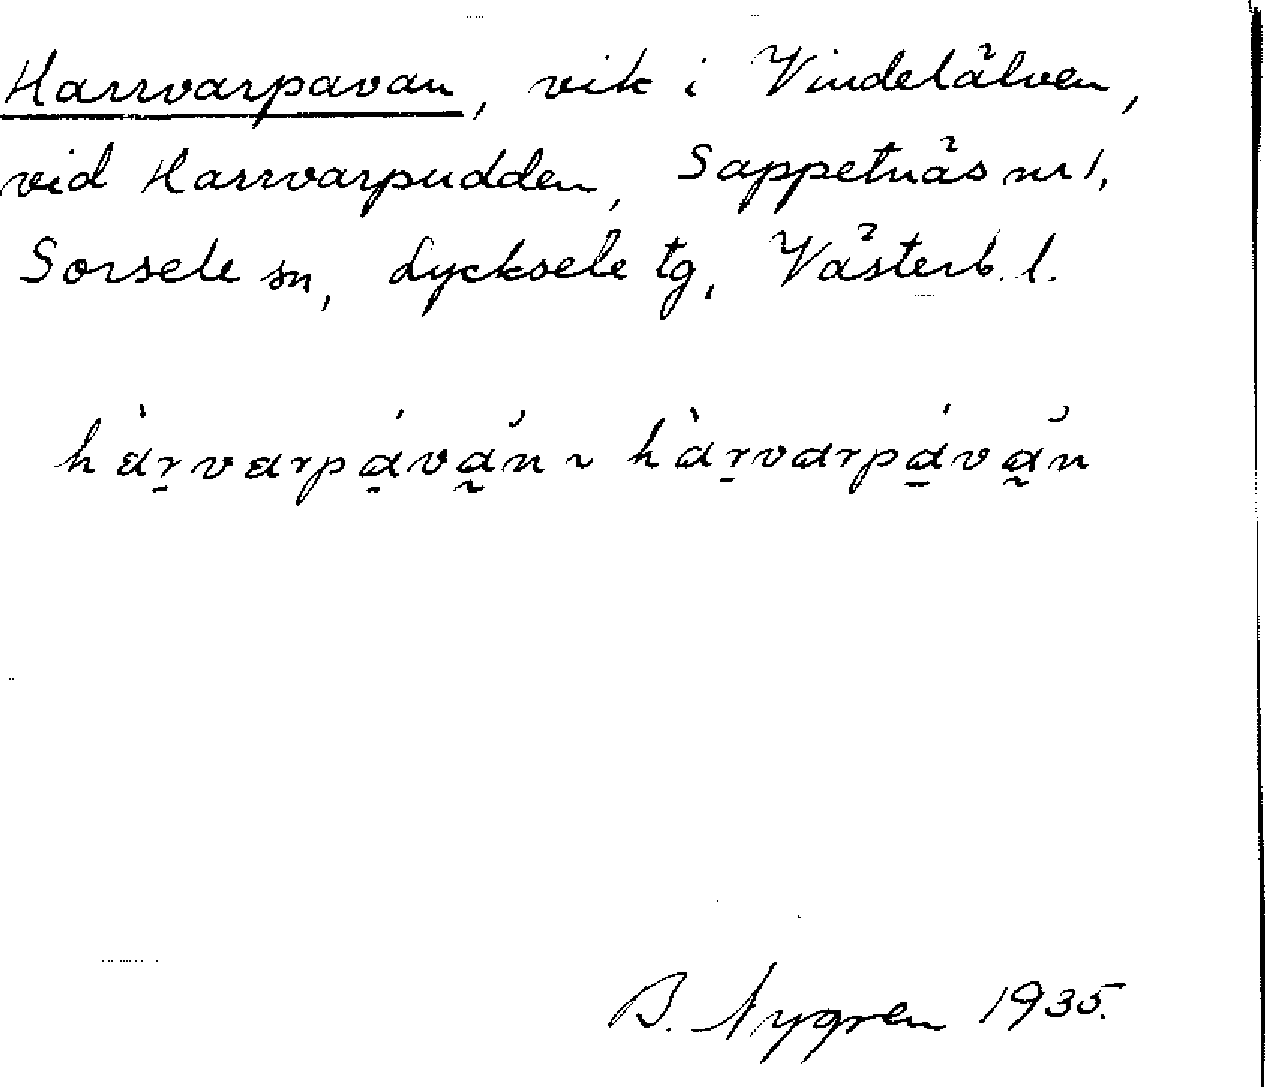 Harrvarpavan, vik i Vindelälven,
vid Harrvarpudden, Sappetnäs nr 1,
Sorsele sn, Lycksele tg, Västerb. l.
hàr̠varpá̠vå̰n ~ hàr̠varpá̠vå̰n
B. Nygren 1935.